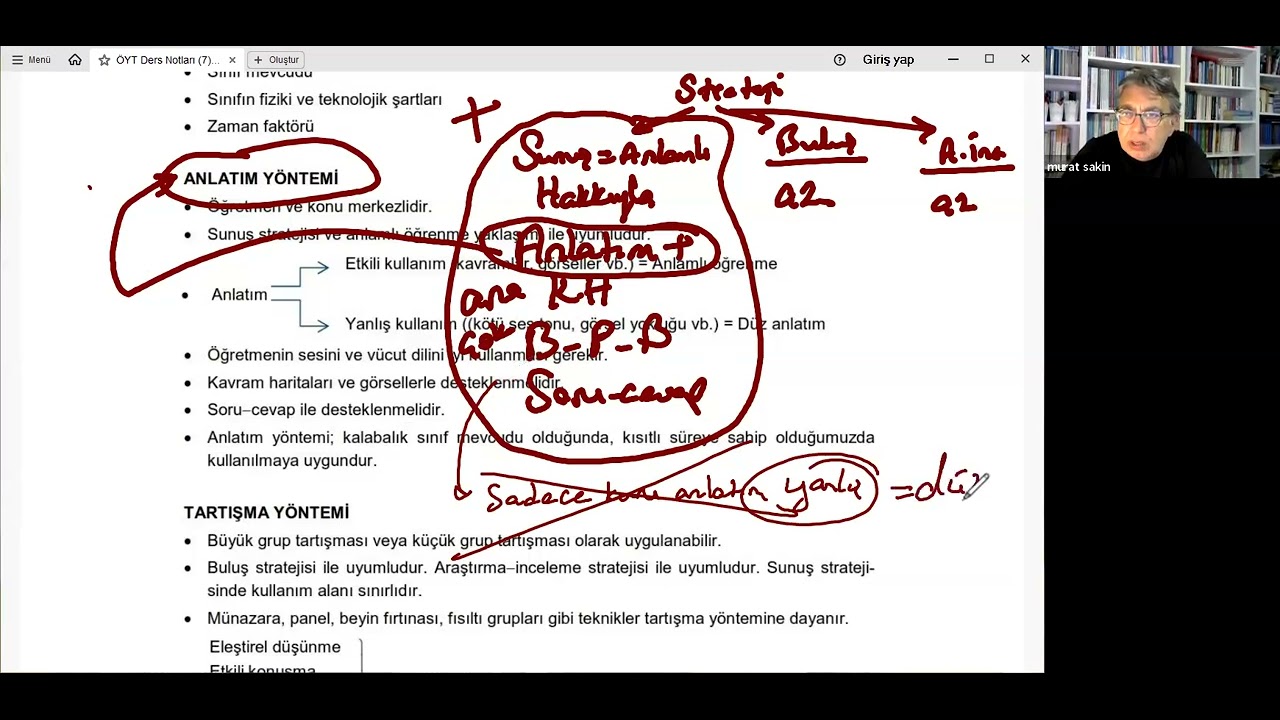 Menü
ÖYT Ders Notları (7)...
Oluştur
Giriş yap
murat sakin
Sınıf mevcudu
Sınıfın fiziki ve teknolojik şartları
Zaman faktörü
Strateji
Buluş
az
az
Sunuş = Anlamlı
Hakkıyla
Anlatım +
KH
B - P - B
Soru-cevap
ANLATIM YÖNTEMİ
Öğretmen ve konu merkezlidir.
Sunuş stratejisi ve anlamlı öğrenme yaklaşımı ile uyumludur.
Etkili kullanım (kavramlar, görseller vb.) = Anlamlı öğrenme
Anlatım
Yanlış kullanım ((kötü ses tonu, görsel yokluğu vb.) = Düz anlatım
Öğretmenin sesini ve vücut dilini iyi kullanması gerekir.
Kavram haritaları ve görsellerle desteklenmelidir.
Soru–cevap ile desteklenmelidir.
Anlatım yöntemi; kalabalık sınıf mevcudu olduğunda, kısıtlı süreye sahip olduğumuzda
kullanılmaya uygundur.
Sadece anlatım yanlış = düz
TARTIŞMA YÖNTEMİ
Büyük grup tartışması veya küçük grup tartışması olarak uygulanabilir.
Buluş stratejisi ile uyumludur. Araştırma–inceleme stratejisi ile uyumludur. Sunuş strateji-
sinde kullanım alanı sınırlıdır.
Münazara, panel, beyin fırtınası, fısıltı grupları gibi teknikler tartışma yöntemine dayanır.
Eleştirel düşünme
Etkili konuşma